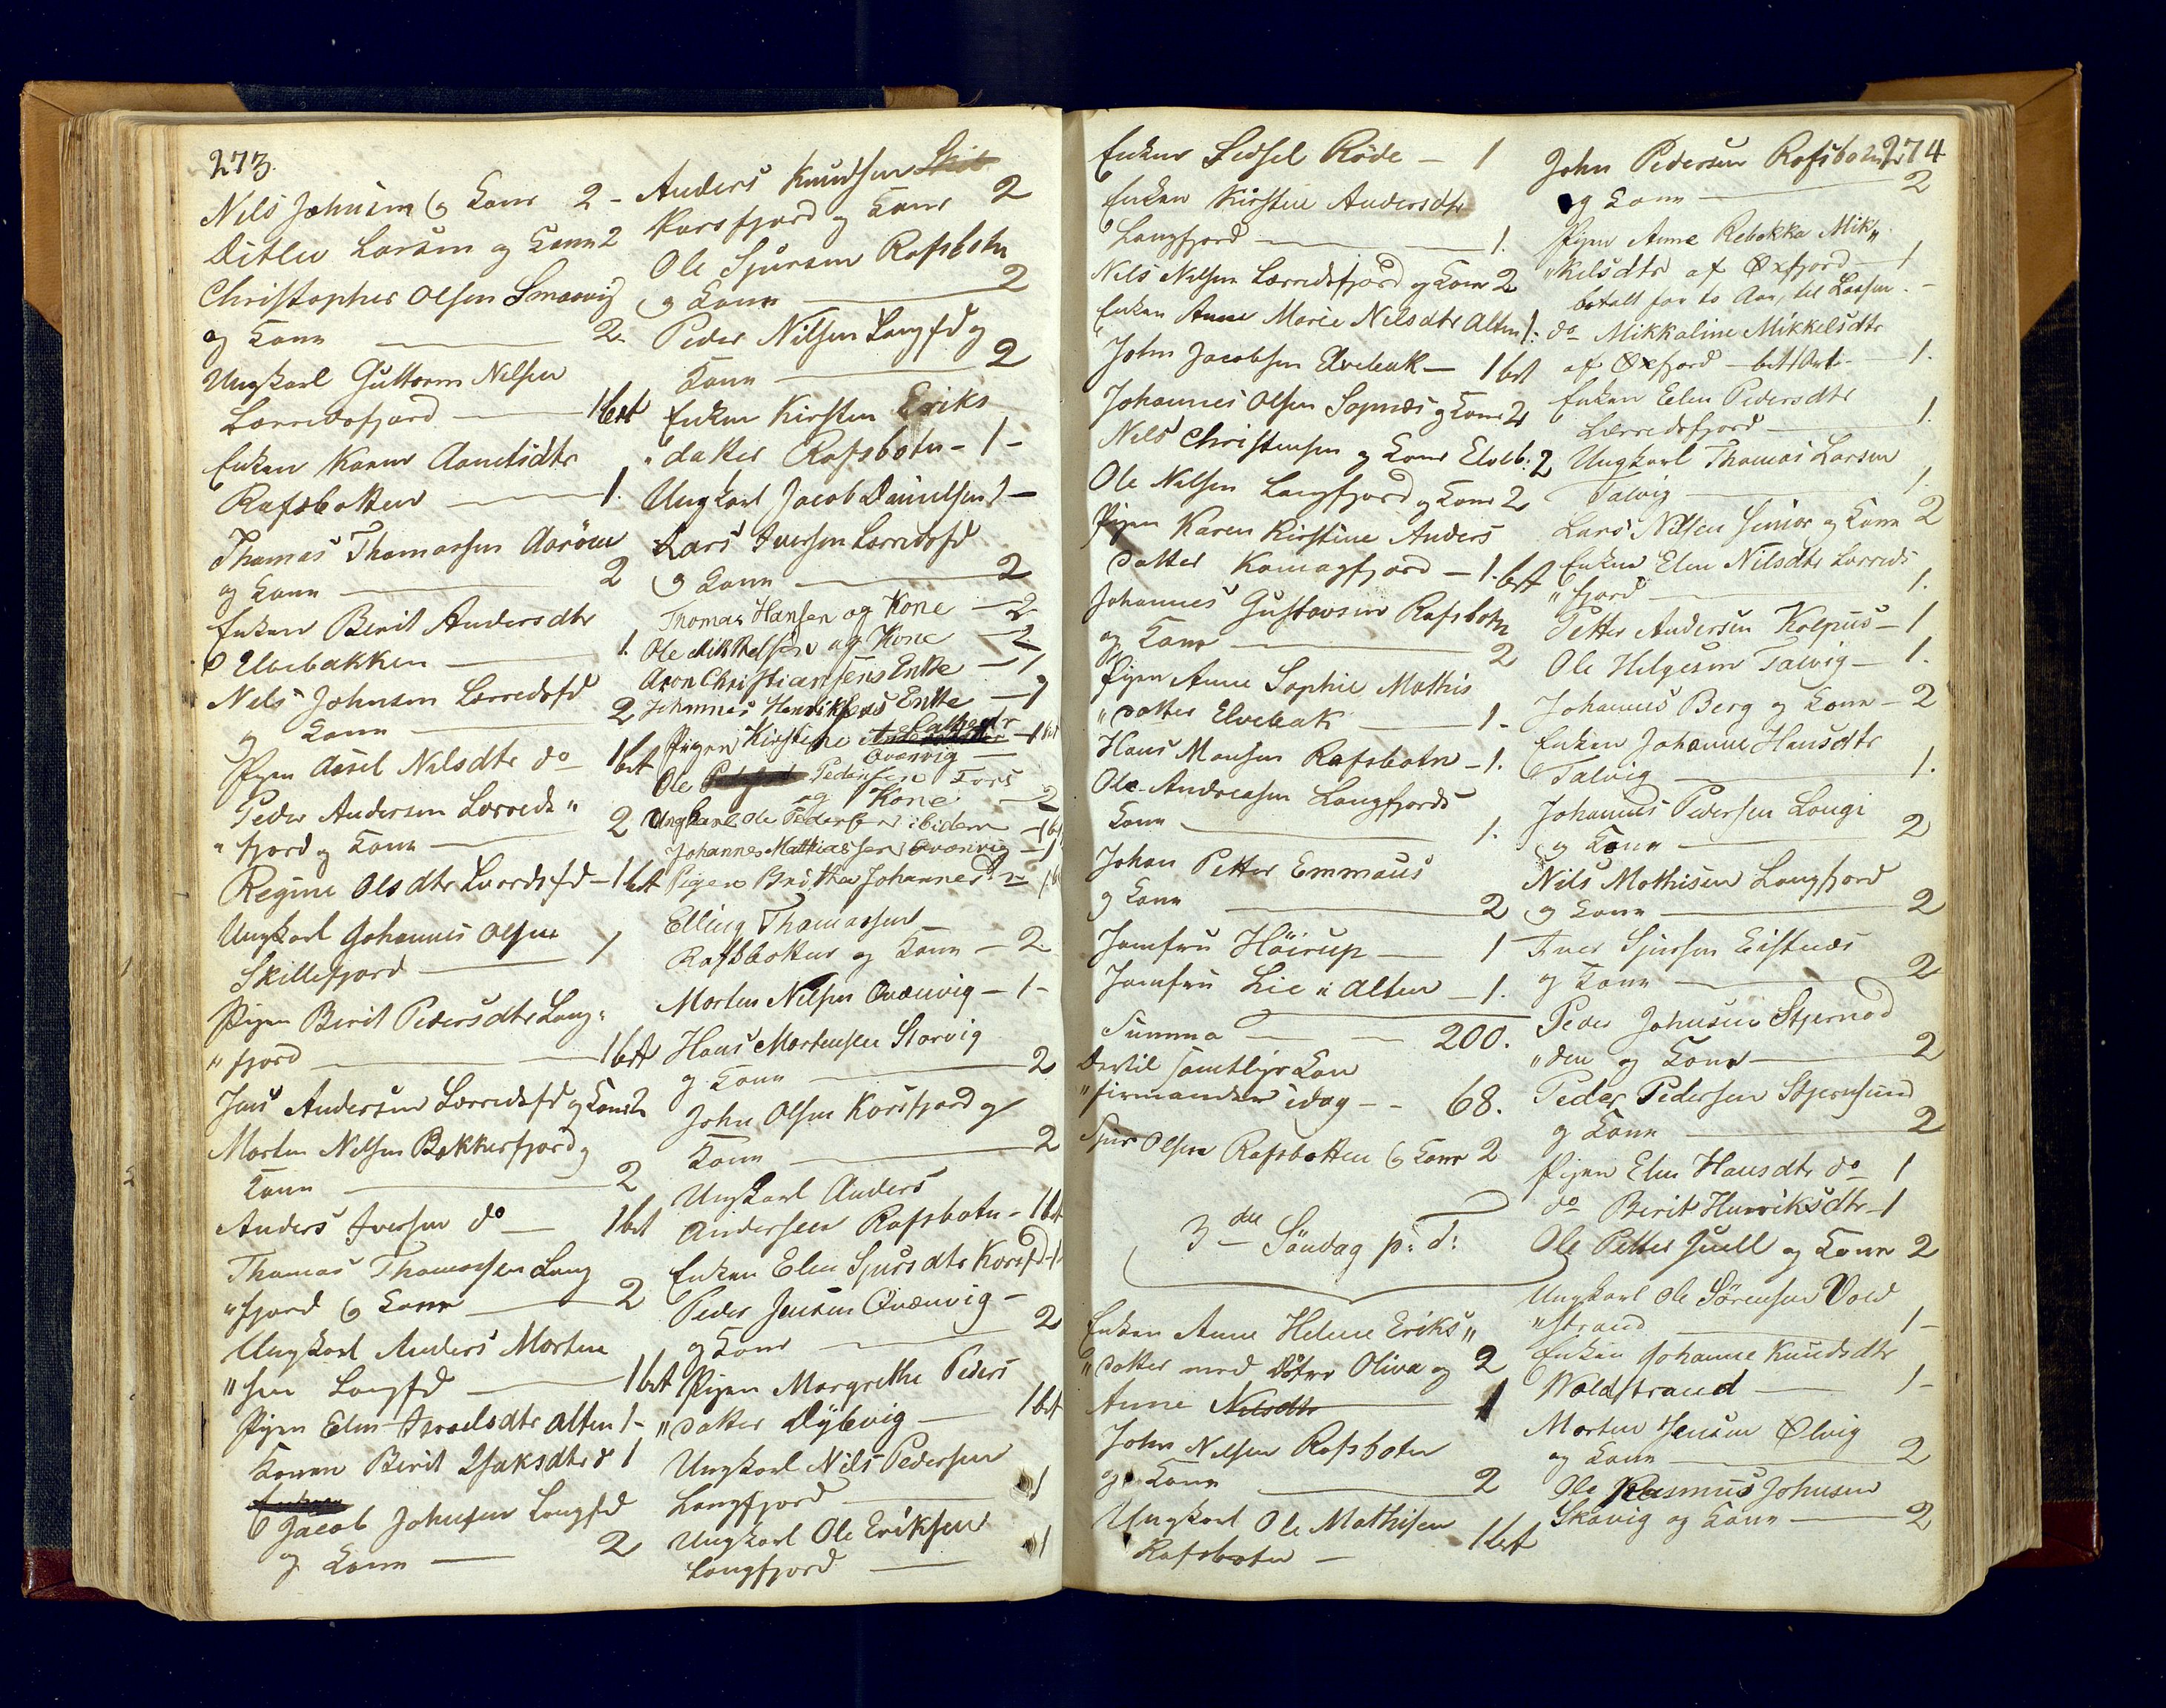 273.
Nils Johnsen og Kone 2 -
Ditlev Larsen og Kone 2
Christopher Olsen Smaavig
og Kone 2.
Ungkarl Guttorm Nilsen
Lerredsfjord 1 bet
Enken Karen Aamedsdtr
Rafsbotten 1.
Thomas Thomassen Aarøen
og Kone 2
Enken Berit Andersdtr
Elvebakken 1.
Nils Johnsen Lerredsfd
og Kone 2
Pigen Aasel Nilsdtr do 1 bet
Peder Andersen Lerreds "
" fjord og Kone 2
Regine Olsdtr Lerredsfd - 1 bet
Ungkarl Johannes Olsen
Skillefjord 1
Pigen Berit Pedersdtr Lang "
" fjord 1 bet
Jens Andersen Lerredsfd og Kone 2
Morten Nilsen Bekkerfjord og
Kone 2
Anders Iversen do 1 bet
Thomas Thomassen Lang
" fjord og Kone 2
Ungkarl Anders Morten
" sen Langfd 1 bet
Pigen Elen Israelsdtr Alten 1 -
Konen Berit Isaksdtr do 1
Jacob Johnsen Langfd
og Kone 2
Anders Knudsen
Korsfjord og Kone 2
Ole Sjursen Rafsbotn
og Kone 2
Peder Nilsen Langfd og
Kone 2
Enken Kirsten Eriks
" datter Rafsbotn - 1 -
Ungkarl Jacob Danielsen 1 -
Lars Iversen Lerredsfd
og Kone 2
Thomas Hansen og Kone - 2
Ole Mikkelsen og Kone - 2
Aron Christiansens Enke - 1
Johannes Henriksens Enke - 1
Pigen Kirstine - 1 bet
Qvænvig
Ole Pedersen Fors
og Kone 2
Ungkarl Ole Pedersen ibidem - 1 bet
Johannes Mathiassen Qvænvig - 1
Pigen Britha Johannesd:
Elling Thomassen
Rafsbotten og Kone - 2.
Morten Nilsen Qvænvig - 1 -
Hans Mortensen Storvig
og Kone 2
John Olsen Korsfjord og
Kone 2
Ungkarl Anders
Andersen Rafsbotn - 1 bet
Enken Elen Sjursdtr Korsfd - 1
Peder Jensen Qvænvig -
og Kone 2
Pigen Margrethe Peders
" datter Dybvig 1 bet
Ungkarl Nils Pedersen
Langfjord 1
Ungkarl Ole Eriksen
Langfjord 1
Enken Sidsel Røde - 1
Enken Kirsten Andersdtr
Langfjord 1.
Nils Nilsen Lerredsfjord og Kone 2
Enken Anne Marie Nilsdtr Alten 1.
John Jacobsen Elvebak - 1 bet
Johannes Olsen Sopnæs og Kone 2
Nils Christensen og Kone Elveb: 2
Ole Nilsen Langfjord og Kone 2
Pigen Karen Kirstine Anders
datter Komagfjord - 1. bet
Johannes Gustavsen Rafsbotn
og Kone 2
Pigen Anne Sophie Mathis
" datter Elvebak 1 -
Hans Monsen Rafsbotn - 1.
Ole Andreasen Langfjords
Kone 1.
Johan Petter Emmaus
og Kone 2
Jomfru Høirup 1
Jomfru Lie i Alten - 1.
Summa 200.
Dertil samtlige Con
" firmander idag - - 68.
Sjur Olsen Rafsbotten og Kone 2
3die Søndag p: d:
Enken Anne Helene Eriks "
" datter med Døtre Oliva og 2
Anne Nilsdtr 1
John Nilsen Rafsbotn
og Kone 2
Ungkarl Ole Mathisen
Rafsbotn - 1 bet
274
John Pedersen Rafsbotn
og Kone 2
Pigen Anne Rebekka Mik "
" kelsdtr af Øxfjord 1
betalt for to Aar, til Larsen. -
do Mikkaline Mikkelsdtr
af Øxfjord - bet 1 Ort - 1.
Enken Elen Pedersdtr
Lerredsfjord 1.
Ungkarl Thomas Larsen
Talvig 1.
Lars Nilsen Senior og Kone 2
Enken Elen Nilsdtr Lerreds
" fjord 1.
Petter Andersen Kolpus - 1
Ole Helgesen Talvig - 1.
Johannes Berg og Kone - 2
Enken Johanne Hansdtr
Talvig 1.
Johannes Pedersen Langi
og Kone 2
Nils Mathisen Langfjord
og Kone 2
Iver Sjursen Eistnæs
og Kone 2
Peder Johnsen Stjernod
" den og Kone 2
Peder Pedersen Stjernsund
og Kone 2
Pigen Elen Hansdtr do 1
do Berit Henriksdtr - 1
Ole Petter Juell og Kone 2
Ungkarl Ole Sørensen Vold
" strand 1 -
Enken Johanne Knudsdtr
Woldstrand 1 -
Morten Jensen Ølvig
og Kone 2
Ole Rasmus Johnsen
Skavig og Kone 2